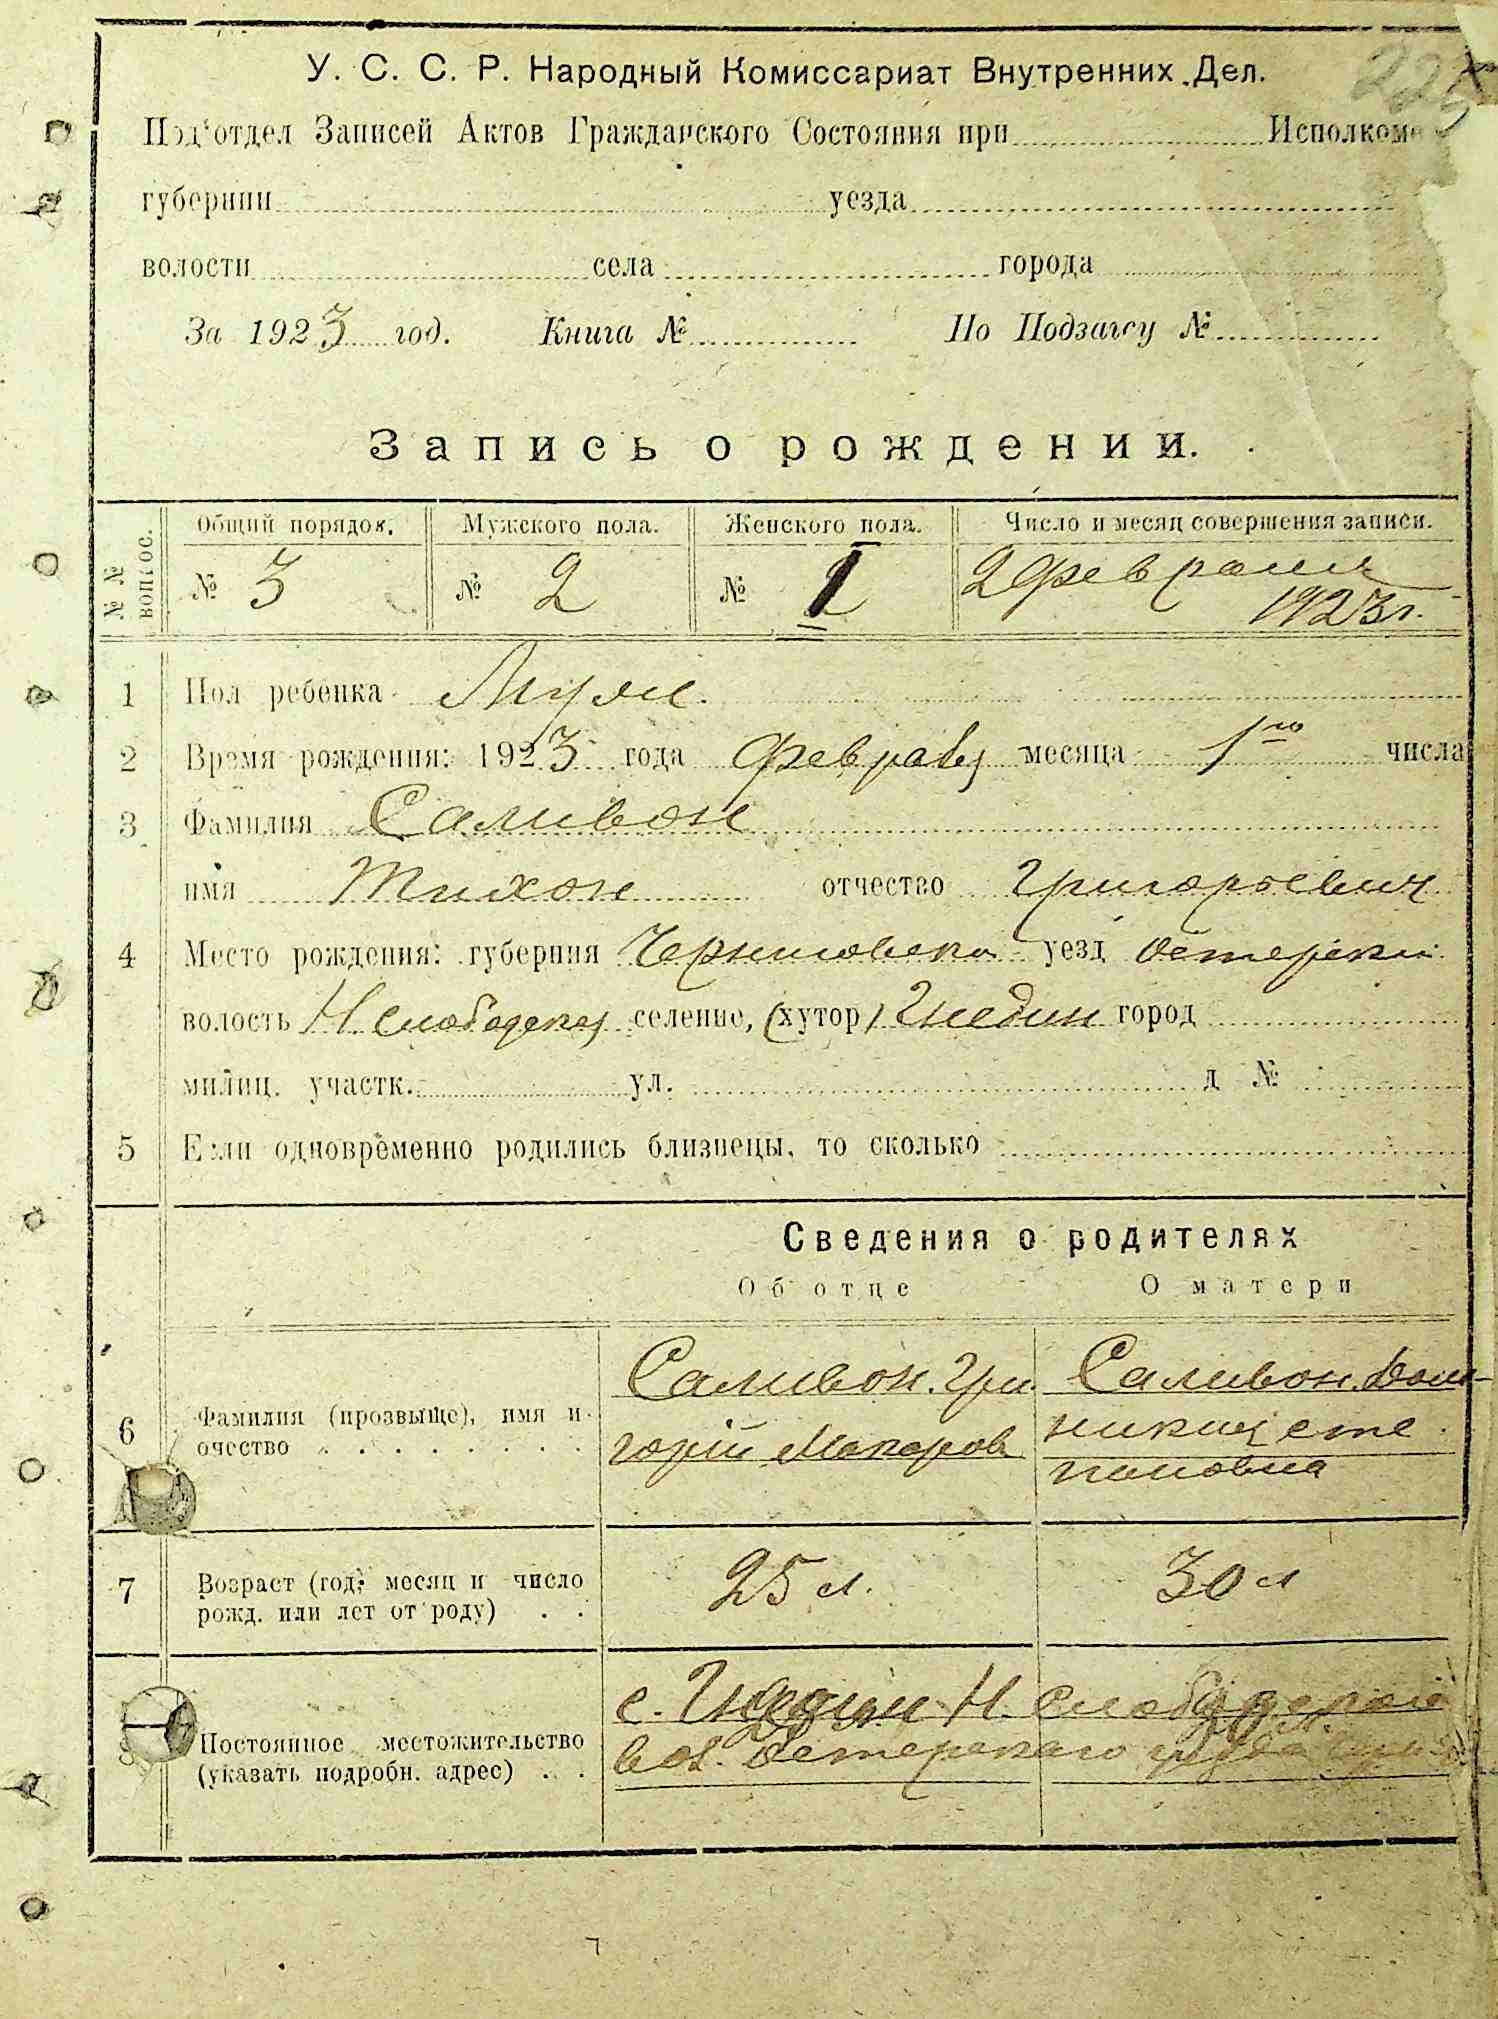 225
У. С. С. Р. Народный Комиссариат Внутренних Дел.
Под'отдел Записей Актов Гражданского Состояния при Исполкоме
губернии уезда
волости села города
За 1923 год. Книга № По Подзагсу №
Запись о рождении.
№ № вопрос. Общий порядок. Мужского пола. Женского пола. Число и месяц совершения записи.
№ 3 № 2 № 1 2 февраля
1923 г.
1 Пол ребенка Муж.
2 Время рождения: 1923 года февраля месяца 1го числа
3 Фамилия Саливон
имя Тихон отчество Григорьевич
4 Место рождения: губерния Черниговска уезд Остерский
волость Н слободская селение, (хутор) Гнедин город
милиц. участк. ул. д №
5 Если одновременно родились близнецы, то сколько
Сведения о родителях
Об отце О матери
Саливон Гри Саливон Дом-
6 Фамилия (прозвыще), имя и
горій Макаров никия Сте
очество
пановна
7 Возраст (год, месяц и число 25 л. 30 л
рожд. или лет от роду)
с. Гнедин Н. слободской
вол. Остерскаго уезда
Постоянное местожительство
(указать подробн. адрес)